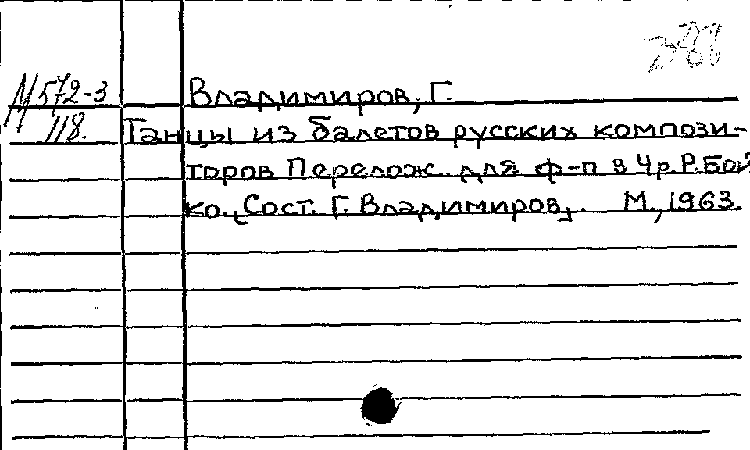 М 572-3
118.
Владимиров, Г.
Танцы из балетов русских компози-
торов Перелож. для ф-п в 4 р. Р. Бой
ко. [Сост. Г. Владимиров]. М., 1963.